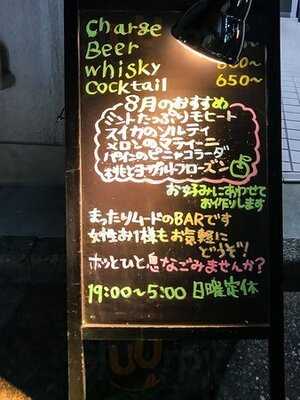 charge
Beer
whisky 650~
cocktail 650~
8月のおすすめ
ミントたっぷりモヒート
スイカのソルティ
メロンのマティーニ
パインのピニャコラーダ
お桃とヨーグルトフローズン
お好みにあわせて
お作りします
まったりムードのBARです
女性お1人様もお気軽に
どうぞ!
ホッとひと息なごみませんか?
19:00~5:00 日曜定休